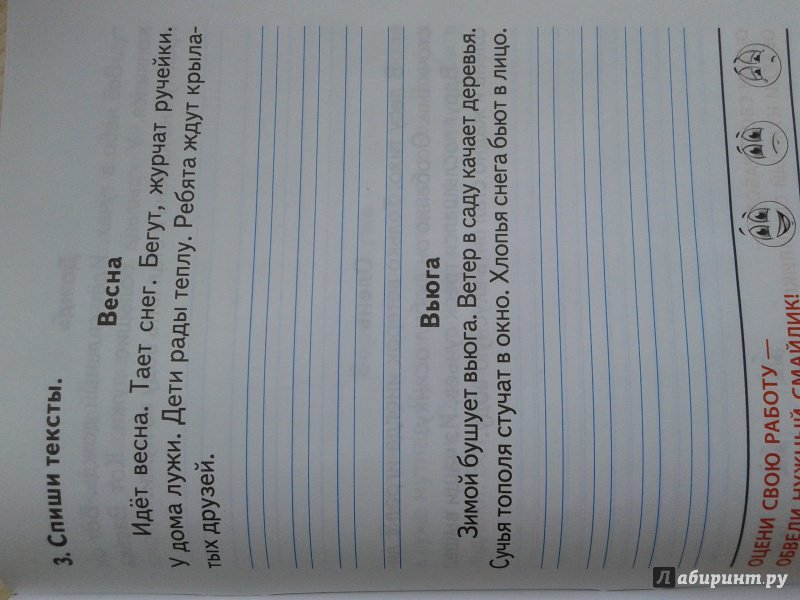 3. Спиши тексты.
Весна
Идёт весна. Тает снег. Бегут, журчат ручейки.
У дома лужи. Дети рады теплу. Ребята ждут крыла-
тых друзей.
Вьюга
Зимой бушует вьюга. Ветер в саду качает деревья.
Сучья тополя стучат в окно. Хлопья снега бьют в лицо.
ОЦЕНИ СВОЮ РАБОТУ —
ОБВЕДИ НУЖНЫЙ СМАЙЛИК!
Лабиринт.ру